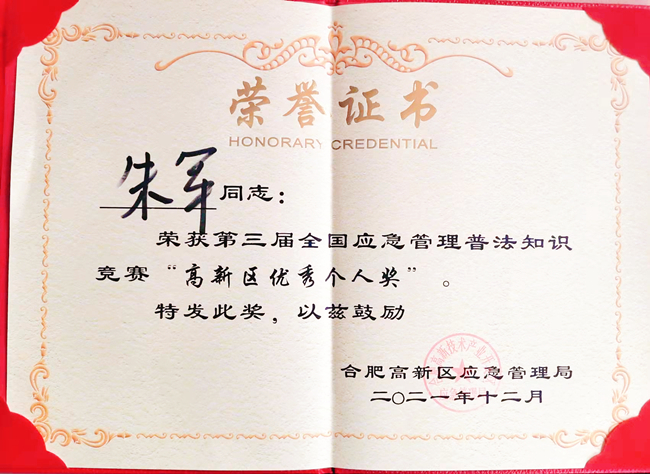 荣誉证书
HONORARY CREDENTIAL
朱军同志：
荣获第三届全国应急管理普法知识
竞赛“高新区优秀个人奖”。
特发此奖，以兹鼓励
合肥高新区应急管理局
二〇二一年十二月